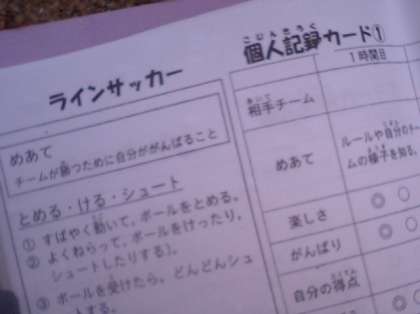 ラインサッカー
めあて
チームが勝つために自分ががんばること
とめる・ける・シュート
① すばやく動いて、ボールをとめる。
② よくねらって、ボールをけったり、
シュートしたりする。
③ ボールを受けたら、どんどんシュ
トする。
こじんきろく
個人記録カード①
1時間目
あいて
相手チーム
めあて
ルールや自分のチー
ムの様子を知る。
楽しさ
◎ ○
がんばり
◎ ○
自分の得点
◎ ○